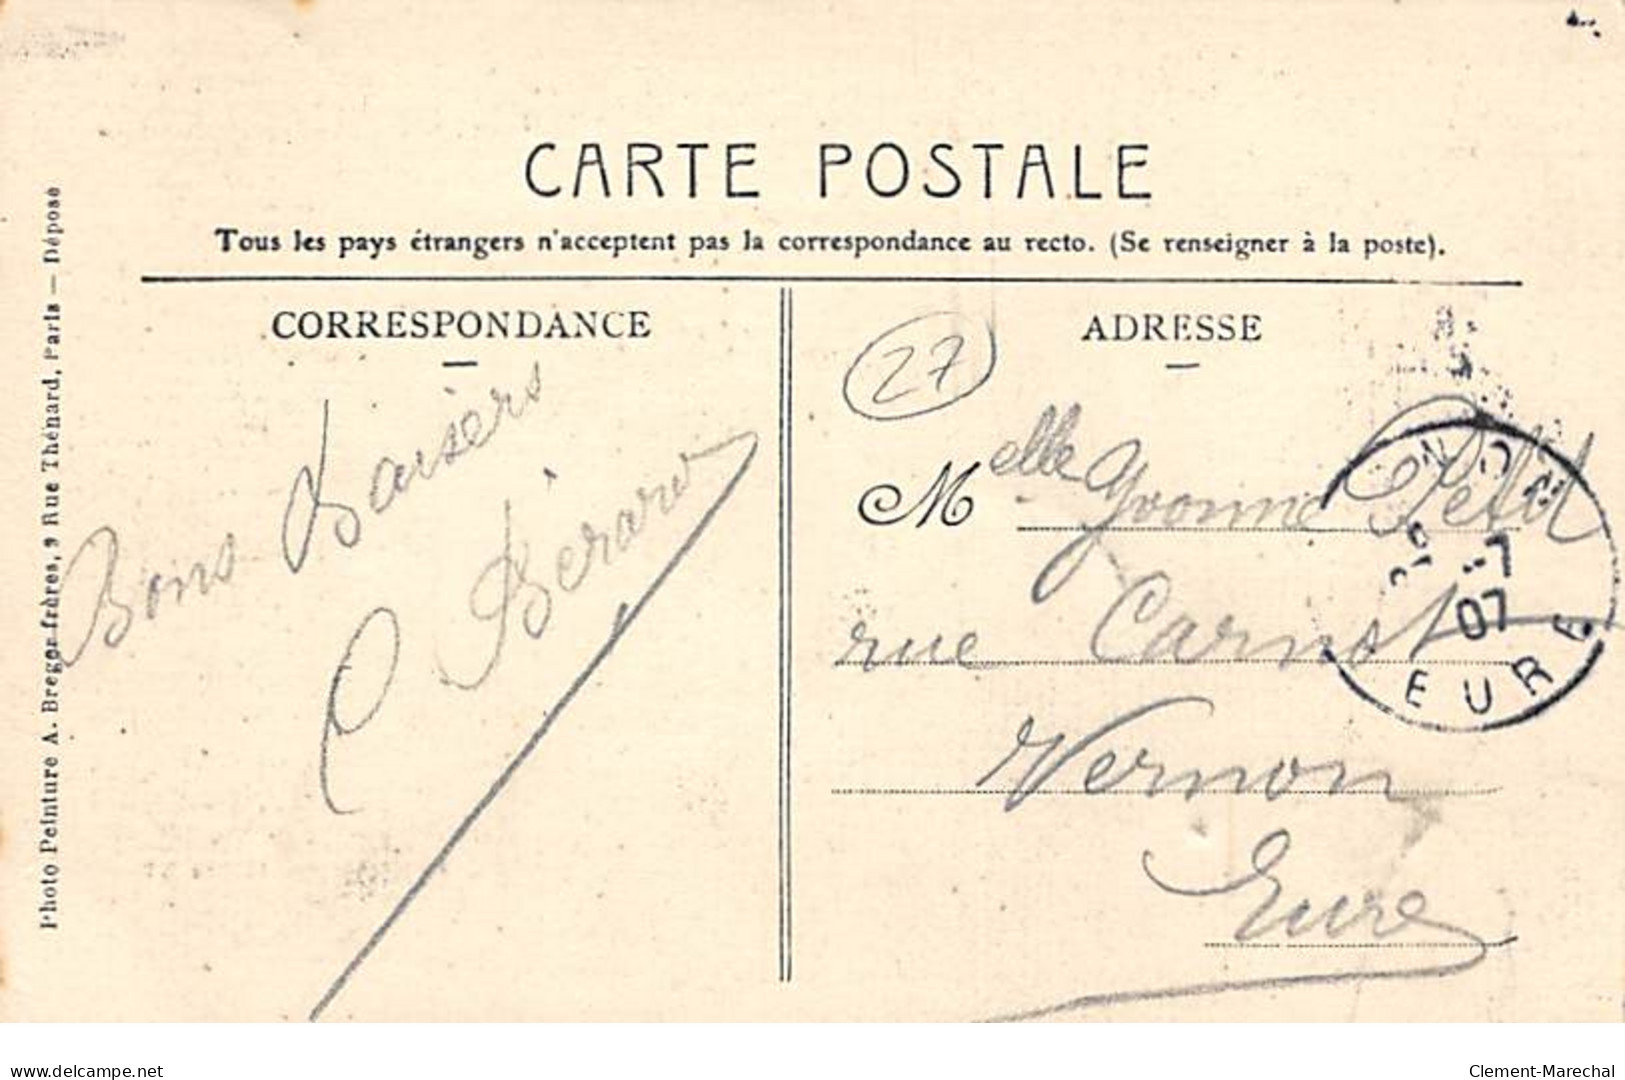 CARTE POSTALE
Tous les pays étrangers n'acceptent pas la correspondance au recto. (Se renseigner à la poste).
CORRESPONDANCE
Bons Baisers
C Bérard
ADRESSE
27
Melle Yvonne Petit
rue Carnot
Vernon
Eure
NON
-7
07
EURE
Photo Peinture A. Breger frères, 9 Rue Thénard, Paris — Déposé
delcampe.net
Clement-Marechal